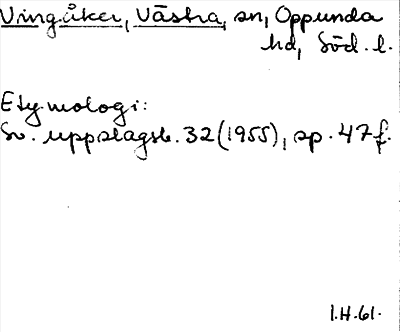 Vingåker, Västra, sn, Oppunda
hd, Söd. l.
Etymologi:
Sv. uppslagsb. 32 (1955), sp. 47 f.
I.H.61.